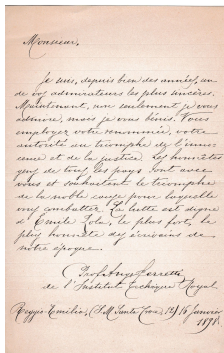 Monsieur,
Je suis, depuis bien des années, un
de vos admirateurs les plus sincères.
Maintenant, non seulement je vous
admire, mais je vous bénis. Vous
employez votre renommée, votre
autorité au triomphe de l'inno-
cence et de la justice. Les honnêtes
gens de tous les pays sont avec
vous et souhaitent le triomphe
de la noble cause pour laquelle
vous combattez. La lutte est digne
d'Emile Zola, le plus fort, le
plus honnête des écrivains de
notre époque.
Prof. Ange Ferretti
de l'Institut technique Royal
Reggio Emilia (Santa Croce, 12) 16 Janvier
1898